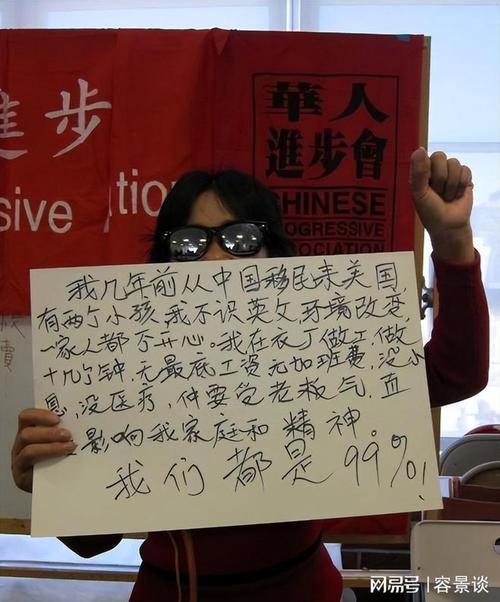 進步
sive
ation
華人
進步會
CHINESE
ROGRESSIVE
SOCIATION
我几年前从中国移民来美国,
有两个小孩,我不识英文,环境改变,
一家人都不开心。我在衣厂做工,做
十几个钟,无最底工资无加班费,没小
息,没医疗,仲要受老板气,
影响我家庭和精神。
我们都是99%!
网易号 | 容景谈